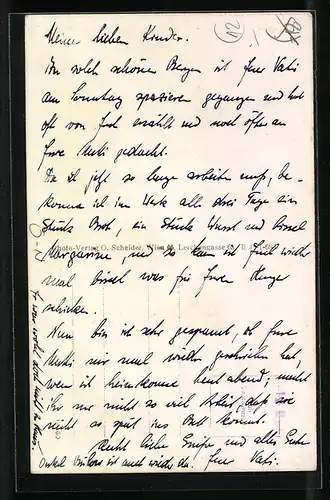 Meine lieben Kinder.
In solch schönen Bergen ist Euer Vati
am Sonntag spazieren gegangen und hat
oft von Euch erzählt und noch öfter an
Eure Mutti gedacht.
Da ich jetzt so lange arbeiten muß, be-
komme ich im Werk alle drei Tage ein
Stück Brot, ein Stück Wurst und bissel
Photo-Verlag O. Schneider, Wien
Margarine, und so kann ich Euch wieder
mal bissel was für Euren Hunger
schicken.
Nun bin ich sehr gespannt, ob Eure
Mutti mir mal wieder geschrieben hat,
wenn ich heimkomme heut abend; macht
ihr nur nicht so viel Arbeit, daß sie
nicht so spät ins Bett kommt.
Recht liebe Grüße und alles Gute
Onkel ist auch wieder da. Euer Vati.
12